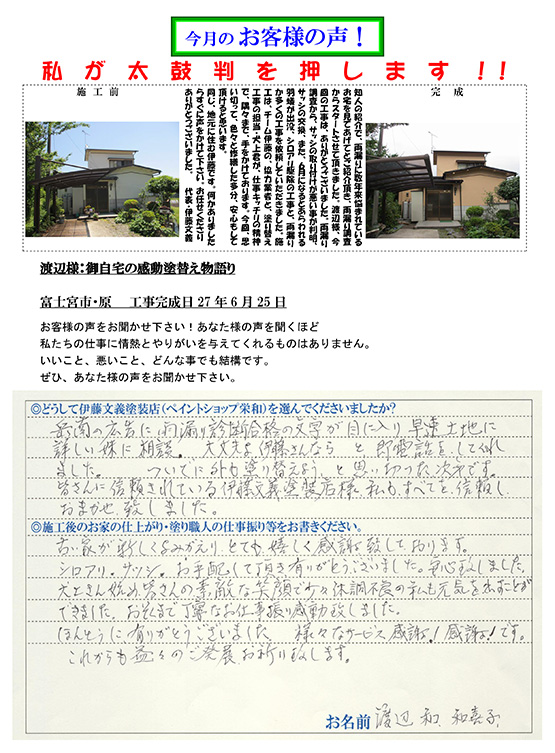 今月の お客様の声！
私が太鼓判を押します!!
施工前
完成
知人の紹介で、雨漏りに数年来悩まれている
お宅を見てあげてとご紹介頂き、雨漏り調査
からスタートさせて頂きました。渡辺様、今
回の工事は、ありがとうございました。雨漏り
調査から、サッシの取り付けが悪い事が判明、
サッシの交換、また、6月になるとあらわれる
羽蟻が出没、シロアリ駆除の工事と、雨漏り
から多くの工事を依頼していただきました。施
工は、チーム伊藤の、協力業者と、塗り替え
工事の担当・犬上君が、仕事キッチリの精神
で、隅々まで、手をかけております。今回、思
い切って、色々と修繕した多分、安心もして
頂けると思います。
同じ、地元に住む伊藤です。何かありました
らすぐに声をかけて下さい。お任せくださり
ありがとうございました。 代表・伊藤文義
渡辺様：御自宅の感動塗替え物語り
富士宮市・原　工事完成日27年6月25日
お客様の声をお聞かせ下さい！あなた様の声を聞くほど
私たちの仕事に情熱とやりがいを与えてくれるものはありません。
いいこと、悪いこと、どんな事でも結構です。
ぜひ、あなた様の声をお聞かせ下さい。
◎どうして伊藤文義塗装店(ペイントショップ栄和)を選んでくださいましたか？
岳南の広告に、雨漏り診断合格の文字が目に入り 早速土地に
詳しい妹に相談。 大丈夫よ 伊藤さんなら と 即電話をしてくれ
ました。 ついでに外も塗り替えよう、と思い切った次第です。
皆さんに信頼されている伊藤文義塗装店様、私も、すべてを信頼し
おまかせ致しました。
◎施工後のお家の仕上がり・塗り職人の仕事振り等をお書きください。
お家が新しくよみがえり とても嬉しく感謝致しております。
シロアリ、サッシ、お手配して頂き有りがとうございました。安心致しました。
犬上さん始め皆さんの素敵な笑顔で少々体調不良の私も元気を出すことが
できました。 お茶まで丁寧なお仕事振り感動致しました。
ほんとうに有りがとうございました 様々なサービス感謝！感謝！です。
これからも益々のご発展お祈り致します。
お名前 渡辺 和 和喜子